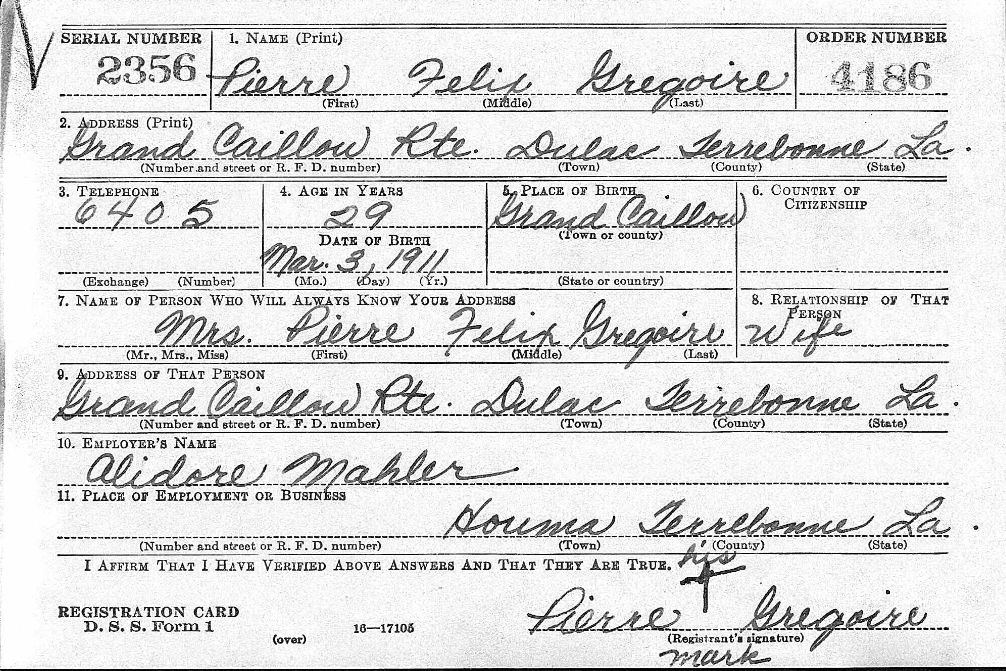 SERIAL NUMBER 1. NAME (Print) ORDER NUMBER
2356 Pierre Felix Gregoire 4186
(First) (Middle) (Last)
2. ADDRESS (Print)
Grand Caillou Rte. Dulac Terrebonne La.
(Number and street or R. F. D. number) (Town) (County) (State)
3. TELEPHONE 4. AGE IN YEARS 5. PLACE OF BIRTH 6. COUNTRY OF CITIZENSHIP
6405 29 Grand Caillou
(Town or county)
DATE OF BIRTH
Mar. 3, 1911
(Exchange) (Number) (Mo.) (Day) (Yr.) (State or country)
7. NAME OF PERSON WHO WILL ALWAYS KNOW YOUR ADDRESS 8. RELATIONSHIP OF THAT PERSON
Mrs. Pierre Felix Gregoire Wife
(Mr., Mrs., Miss) (First) (Middle) (Last)
9. ADDRESS OF THAT PERSON
Grand Caillou Rte. Dulac Terrebonne La.
(Number and street or R. F. D. number) (Town) (County) (State)
10. EMPLOYER'S NAME
Alidore Mahler
11. PLACE OF EMPLOYMENT OR BUSINESS
Houma Terrebonne La.
(Number and street or R. F. D. number) (Town) (County) (State)
I AFFIRM THAT I HAVE VERIFIED ABOVE ANSWERS AND THAT THEY ARE TRUE.
his
REGISTRATION CARD
D. S. S. Form 1 (over) 16—17105
Pierre Gregoire
(Registrant's signature)
mark